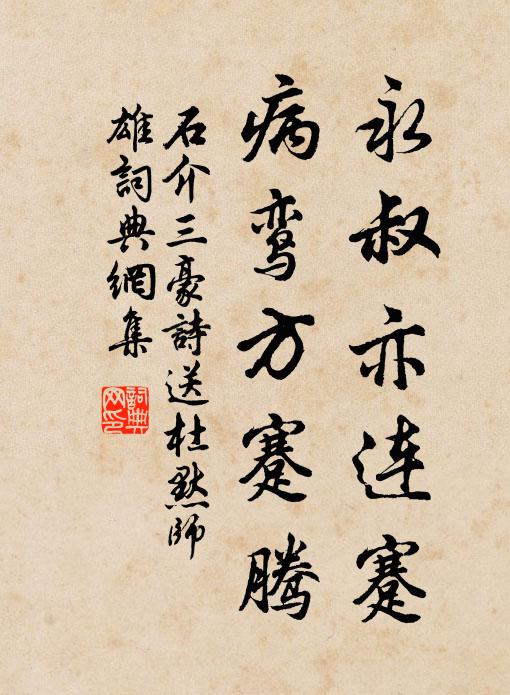 永叔亦连蹇
病鸾方蹇腾
石介三豪詩送杜默師
雄詞典網集
詞典网印